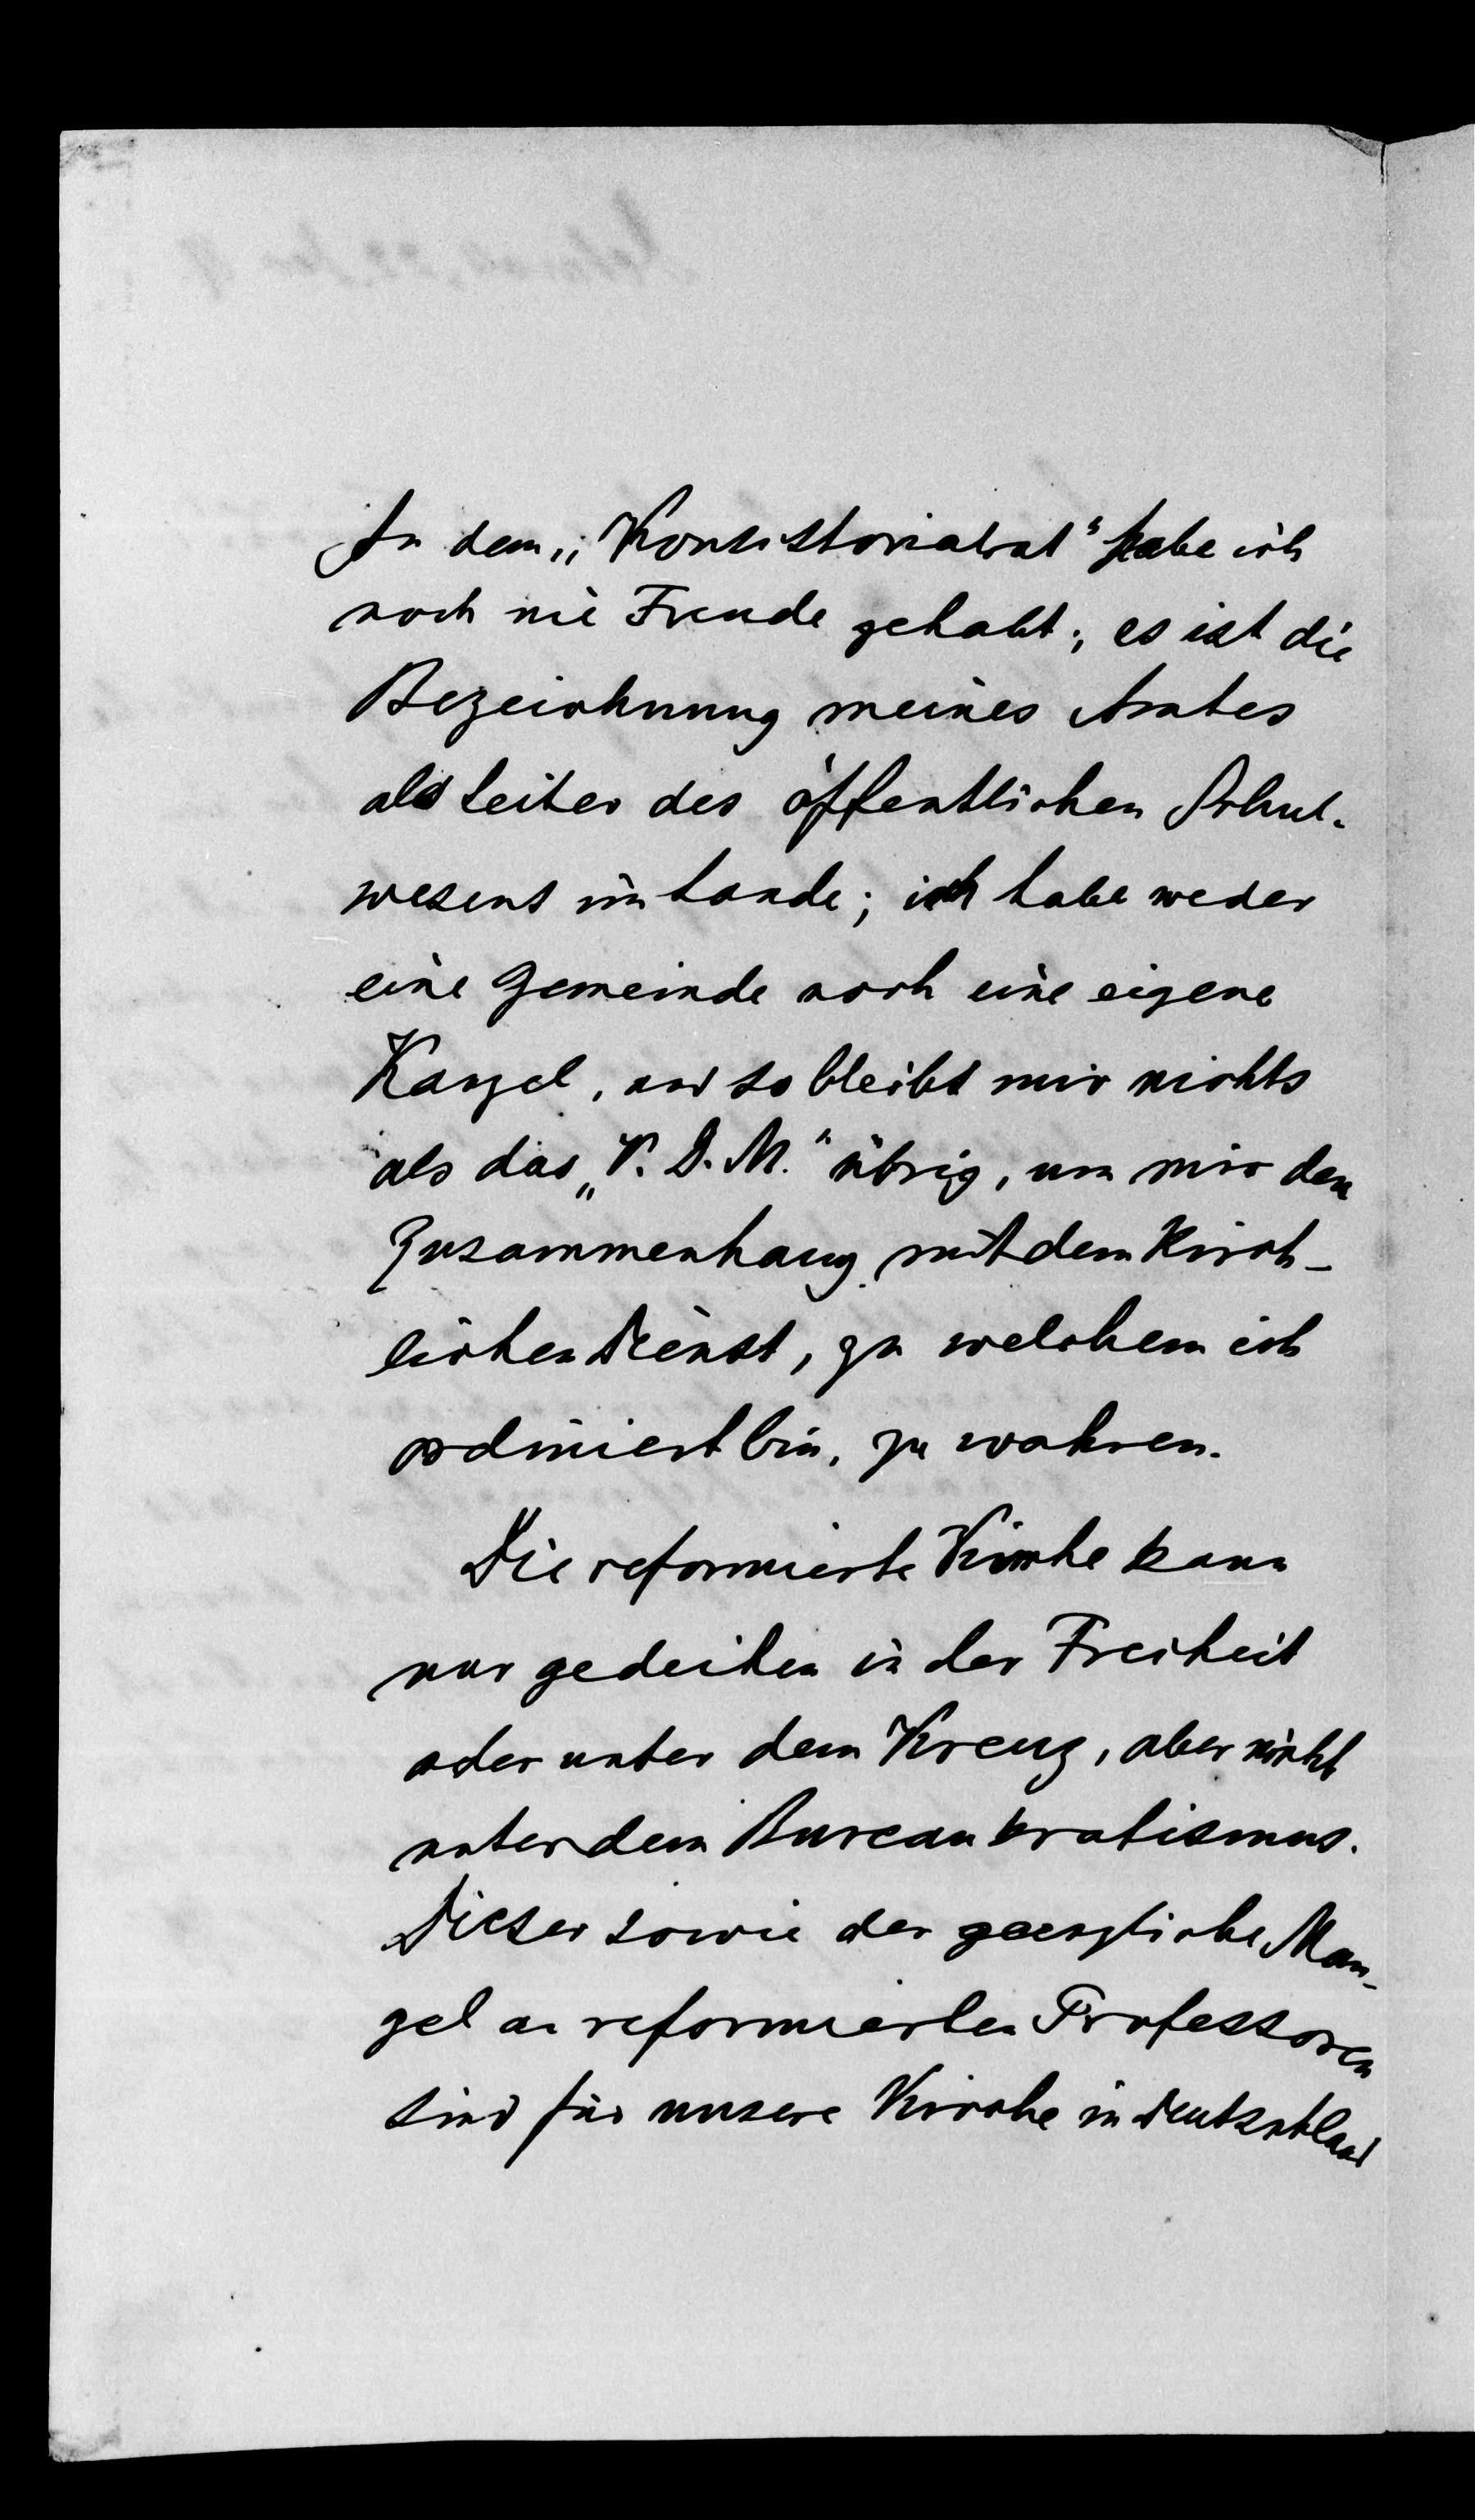 In dem „Konsistorialrat“ habe ich
noch nie Freude gehabt; es ist die
Bezeichnung meines Amtes
als Leiter des öffentlichen Schul-
wesens im Lande; ich habe weder
eine Gemeinde noch eine eigene
Kanzel, und so bleibt mir nichts
als das „V. D. M.“ übrig, um mir den
Zusammenhang mit dem kirch-
lichen Dienst, zu welchem ich
ordiniert bin, zu wahren.
Die reformierte Kirche kann
nur gedeihen in der Freiheit
oder unter dem Kreuz, aber nicht
unter dem Bureaukratismus.
Dieser sowie der gaenzliche Man-
gel an reformierten Professoren
sind für unsere Kirche in Deutschland